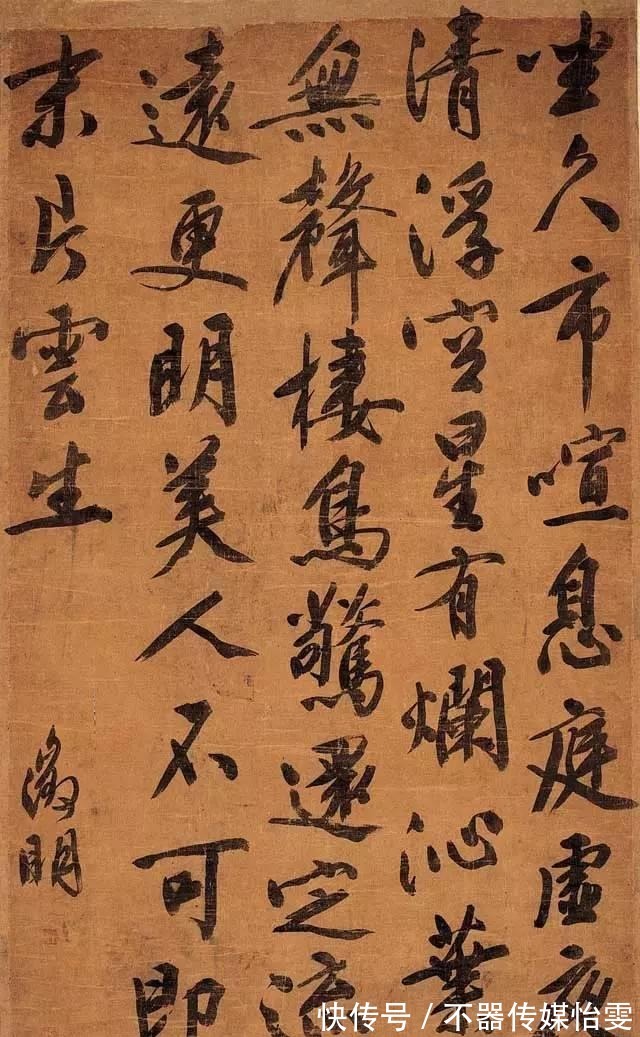 坐久市喧息庭虛夜
清浮空星有爛沁葉
無聲棲鳥驚還定流
遠更明美人不可即
末片雲生
徵明
快传号 / 不器传媒怡雯